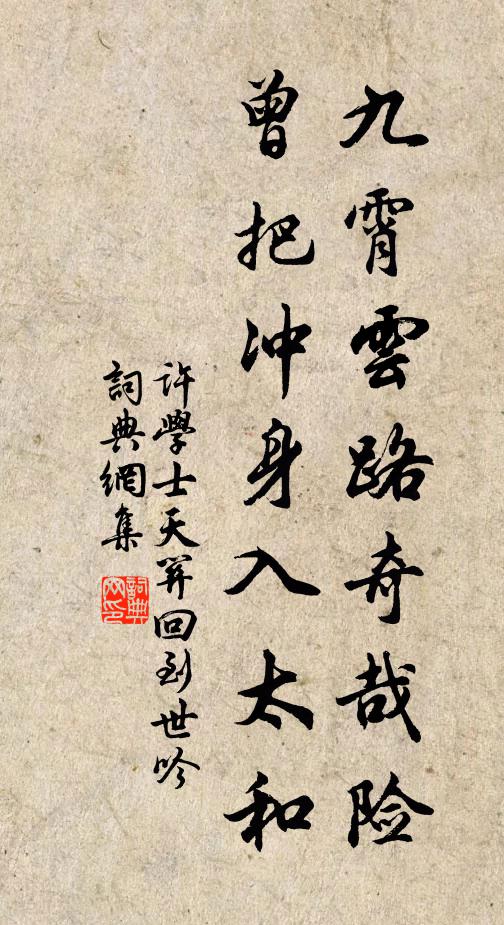 九霄雲路奇哉险
曾把冲身入太和
许學士天笄回到世吟
詞典網集
詞典